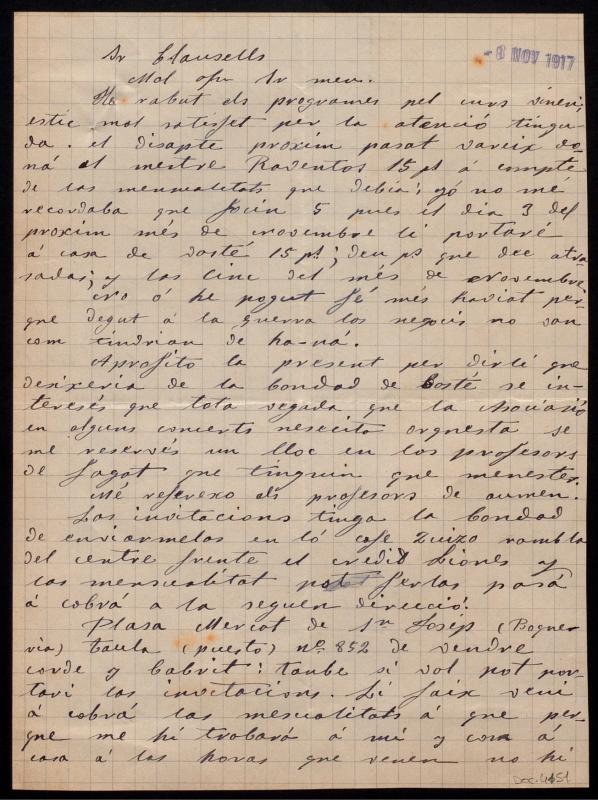 Sr Clausells
- 8 NOV 1917
Mol apn Sr meu.
He rabut els programes pel curs vineri,
estic mol satisfet per la atenció tingu-
da. el disapte proxim pasat vareix do-
ná el mestre Raventos 15 pt á compte
de las mensualitats que debia; yó no mé
recordaba que fosin 5 pues el dia 3 del
proxim més de novembre li portaré
á casa de vosté 15 pt; deu ps que dec atra-
sadas; y las cinc del més de Novembre.
No ó he pogut fé més haviat per-
que degut á la guerra los negocis no van
com tindrian de ha-ná.
Aprofito la present per dirli que
desixeria de la bondad de Vosté se in-
teresés que tota vegada que la Asociasió
en alguns concerts nesecita orquesta se
me reservés un lloc en los profesors
de Fagot que tinguin que menester.
Mé referexo als profesors de aumen.
Las invitacions tinga la bondad
de enviarmelas en ló cafe Zuizo rambla
del centre frente el credid Liones y
las mensualitat pot ferlas pasá
á cobrá a la seguen direcció.
Plasa Mercat de Sn Josép (Boque-
ria) taula (puesto) nº 852 de vendre
corde y Cabrit: tanbe si vol pot por-
tari las invitacions. Li faix veni
á cobrá las mesualitats á qui per-
que me hi trobará á mi y com á
casa á las horas que venen no hi
DOC. 4151